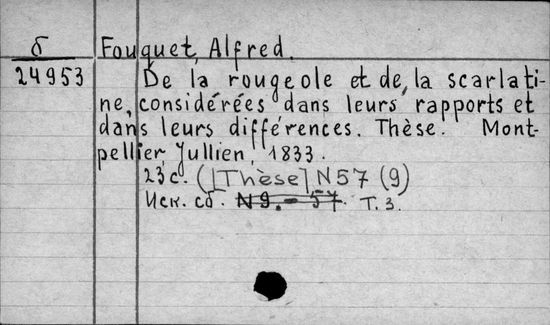 б
24953
Fouquet, Alfred.
De la rougeole et de la scarlati-
ne, considérées dans leurs rapports et
dans leurs différences. Thèse. Mont-
pellier, Jullien, 1833.
23 с. ([Thèse] N 57 (9)
Иск. сб. N 9. – 57. Т. 3.